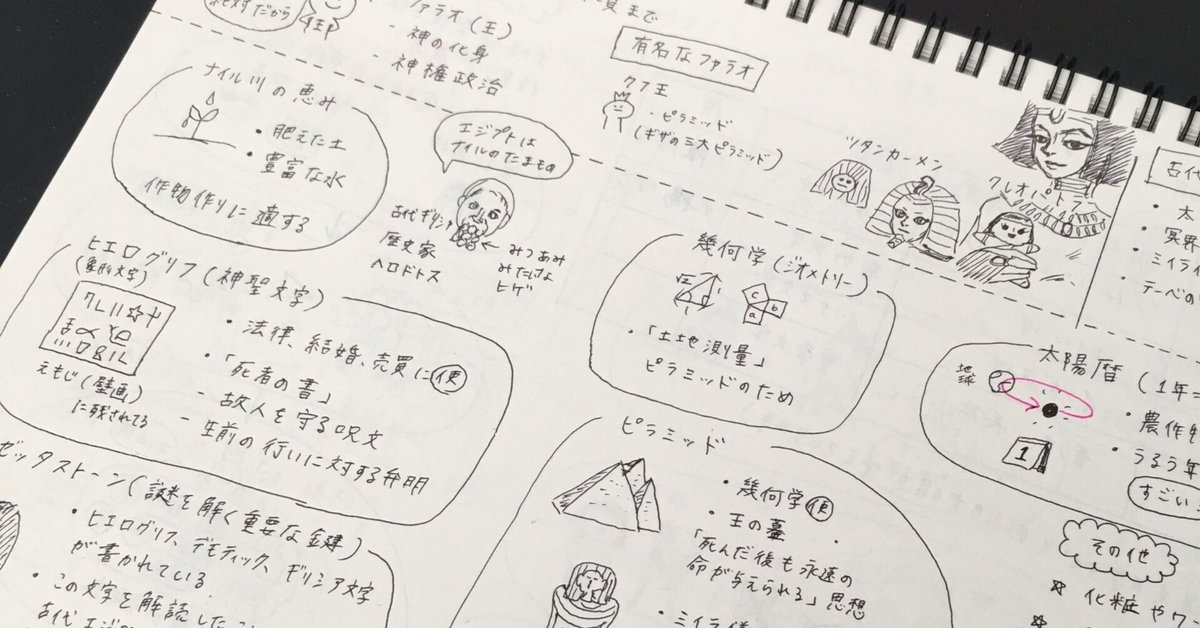 絶対だから
ファラオ(王)
- 神の化身
- 神権政治
まで
有名なファラオ
クフ王
・ピラミッド
(ギザの三大ピラミッド)
ツタンカーメン
クレオパトラ
古代
・太
・冥界
・ミイラ
・テーベの
ナイル川の恵み
・肥えた土
・豊富な水
作物作りに適する
エジプトは
ナイルのたまもの
古代ギリシャ
歴史家
ヘロドトス
←みつあみ
みたいな
ヒゲ
ヒエログリフ(神聖文字)
(象形文字)
えもじ(壁画)
に残されてる
・法律、結婚、売買に使
・「死者の書」
- 故人を守る呪文
- 生前の行いに対する弁明
幾何学(ジオメトリー)
√2
1
1
c
a
b
・「土地測量」
ピラミッドのため
太陽暦(1年=
地球
1
・農作物
・うるう年
すごい
ゼッタストーン(謎を解く重要な鍵)
・ヒエログリフ、デモティック、ギリシア文字
が書かれている
・この文字を解読したこ
古代エジ
ピラミッド
・幾何学使
・王の墓
「死んだ後も永遠の
命が与えられる」思想
・ミイラ
その他
☆ 化粧やワ
☆